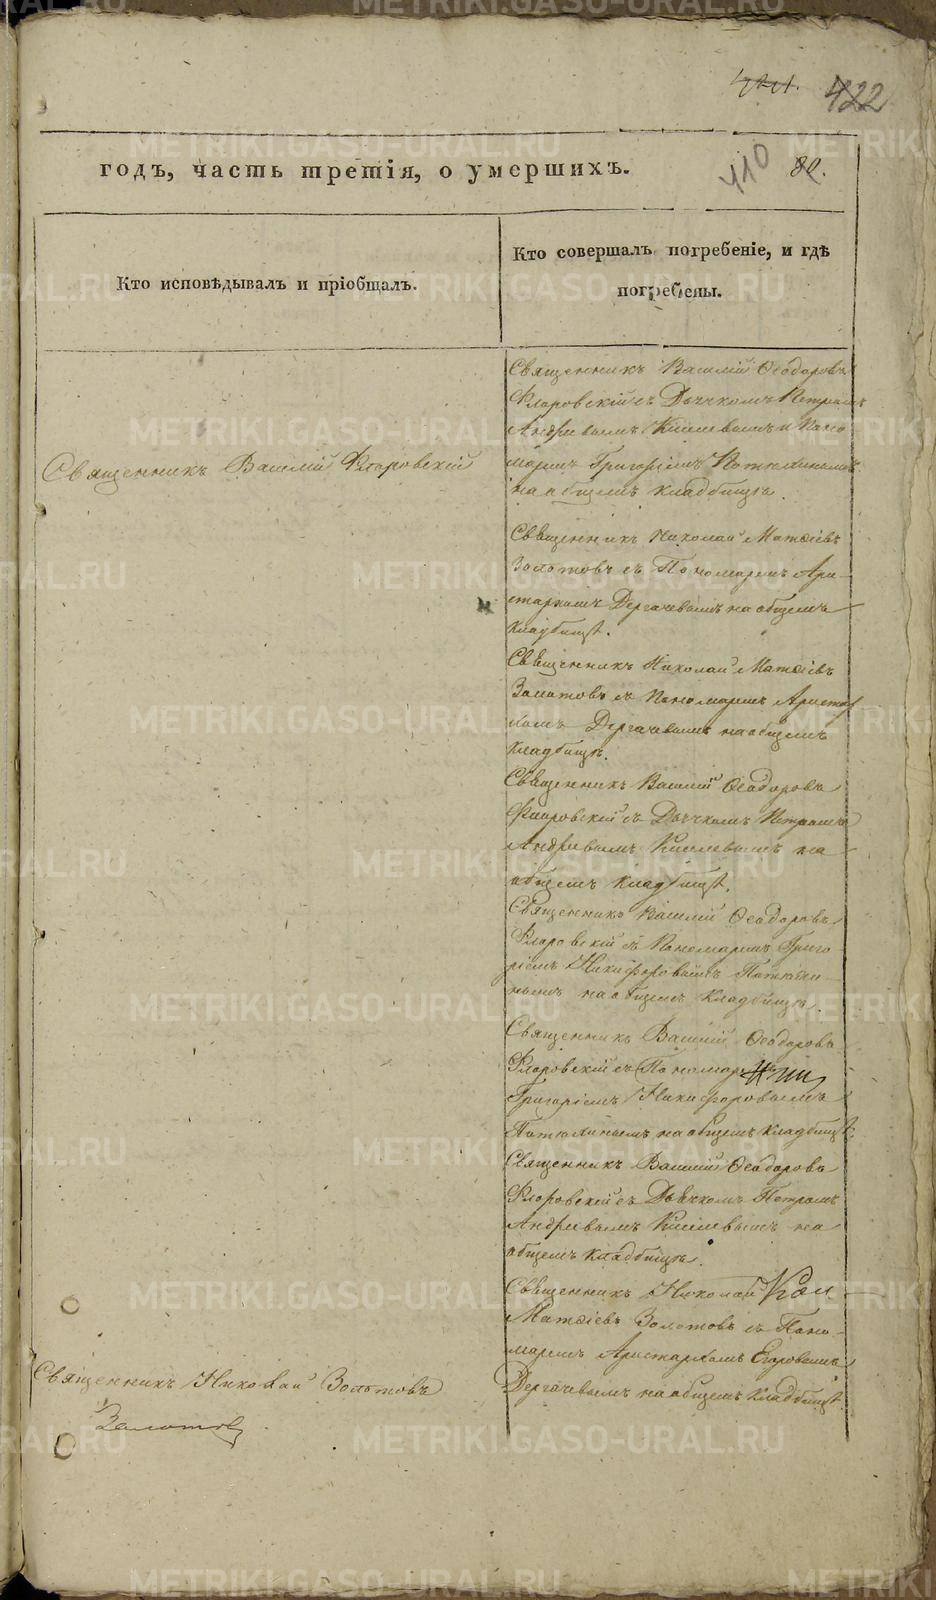 421.
422
годъ, часть третія, о умершихъ.
410
80.
Кто исповѣдывалъ и пріобщалъ.
Кто совершалъ погребеніе, и гдѣ
погребены.
Священникъ Василій Флоровскій
Священникъ Василій Ѳеодоровъ
Флоровскій съ Дьячкомъ Петромъ
Андріевымъ Киселевымъ и Поно
маремъ Григоріемъ Потюлинымъ
на общемъ кладбищѣ.
Священникъ Николай Матѳіевъ
Золотовъ съ Пономаремъ Ари-
стархомъ Дергачевымъ на общемъ
кладбищѣ.
Священникъ Николай Матѳіевъ
Золотовъ съ Пономаремъ Аристар
хомъ Дергачевымъ на общемъ
кладбищѣ.
Священникъ Василій Ѳеодоровъ
Флоровскій съ Дьячкомъ Петромъ
Андріевымъ Киселевымъ на
общемъ кладбищѣ.
Священникъ Василій Ѳеодоровъ
Флоровскій съ Пономаремъ Григо-
ріемъ Никифоровымъ Потюли-
нымъ на общемъ кладбищѣ.
Священникъ Василій Ѳеодоровъ
Флоровскій съ Пономаремъ
Григоріемъ Никифоровымъ
Потюлинымъ на общемъ кладбищѣ.
Священникъ Василій Ѳеодоровъ
Флоровскій съ Дьячкомъ Петромъ
Андріевымъ Киселевымъ на
общемъ кладбищѣ.
Священникъ Николай
Матѳіевъ Золотовъ съ Поно-
маремъ Аристархомъ Егоровымъ
Дергачевымъ на общемъ кладбищѣ.
Священникъ Николай Золотовъ
Золотовъ
METRIKI.GASO-URAL.RU